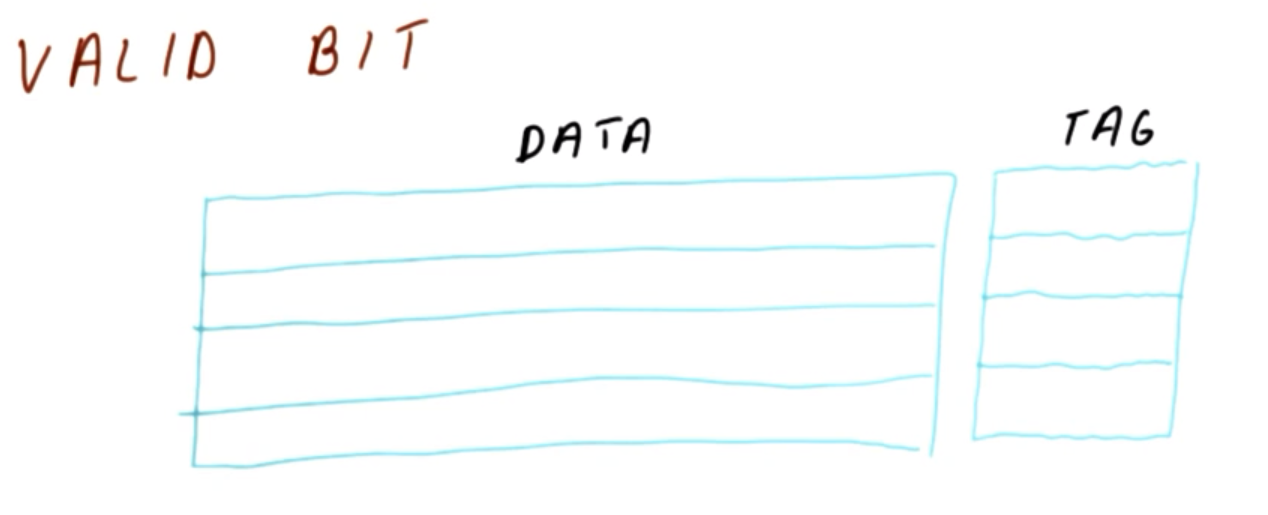 VALID BIT
DATA
TAG